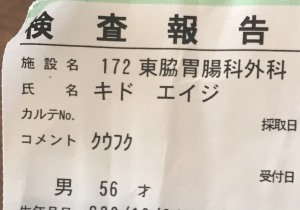 検査報告
施設名 172 東脇胃腸科外科
氏名 キド エイジ
カルテNo.
採取日
コメント クウフク
受付日
男 56 才